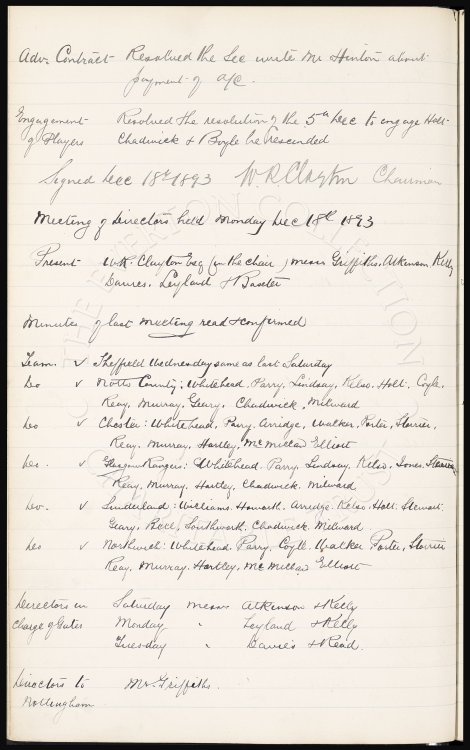 Adv. Contract Resolved the Sec write Mr Hinton about
payment of a/c.
Engagement Resolved the resolution of the 5th Dec to engage Holt
of Players Chadwick & Boyle be rescended
Signed Dec 18th 1893 W. R. Clayton Chairman
Meeting of Directors held Monday Dec 18th 1893
Present W.R. Clayton Esq (in the chair) messrs Griffiths. Atkinson. Kelly
Davies. Leyland & Baxter
Minutes of last meeting read & confirmed
Team. v Sheffield Wednesday same as last Saturday
Do v Notts County: Whitehead. Parry, Lindsay, Kelso. Holt. Coyle,
Reay, Murray, Geary, Chadwick, Milward
Do v Chester: Whitehead, Parry, Arridge, Walker, Porter, Storrier,
Reay. Murray, Hartley, McMillan Elliott
Do. v Glasgow Rangers: Whitehead. Parry, Lindsay, Kelso, Jones, Stewart
Reay, Murray, Hartley, Chadwick, Milward
Do. v Sunderland: Williams. Howarth. Arridge. Kelso. Holt. Stewart
Geary, Bell, Southworth. Chadwick. Milward
Do v Northwich: Whitehead. Parry, Coyle. Walker Porter, Storrier
Reay, Murray. Hartley, McMillan Elliott
Directors in Saturday messrs Atkinson & Kelly
charge of Gates Monday " Leyland & Kelly
Tuesday " Davies & Read.
Directors to Mr. Griffiths.
Nottingham
THE EVERTON COLLECTION